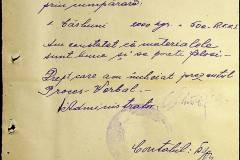 prin cumpărare:
1 Cărbuni 1000 kgr. - 500 RCM.
Am constatat că materialele
sunt bune și se pot folosi -
Drept care am încheiat prezentul
Proces-Verbal. -
Administrator
Contabil: